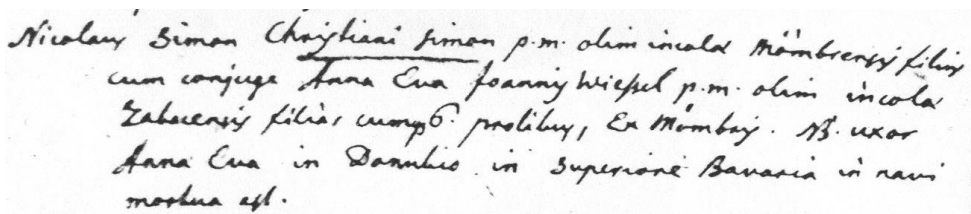 Nicolaus Simon Christiani Simon p.m. olim incolæ Mömbrensis filius
cum conjuge Anna Eva Joannis Wiessel p.m. olim incola
filia, cum 6 prolibus, Ex Mömbris. NB. uxor
Anna Eva in Danubio in superiore Bavaria in navi
mortua est.